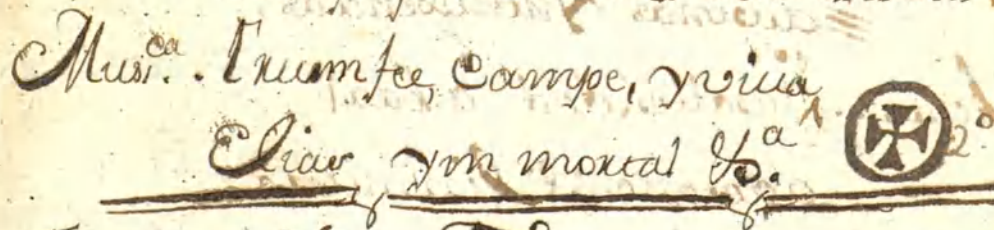 Musi.ca. Triumfee, Campe, y viva
Elias ymmortal &.a 2.o